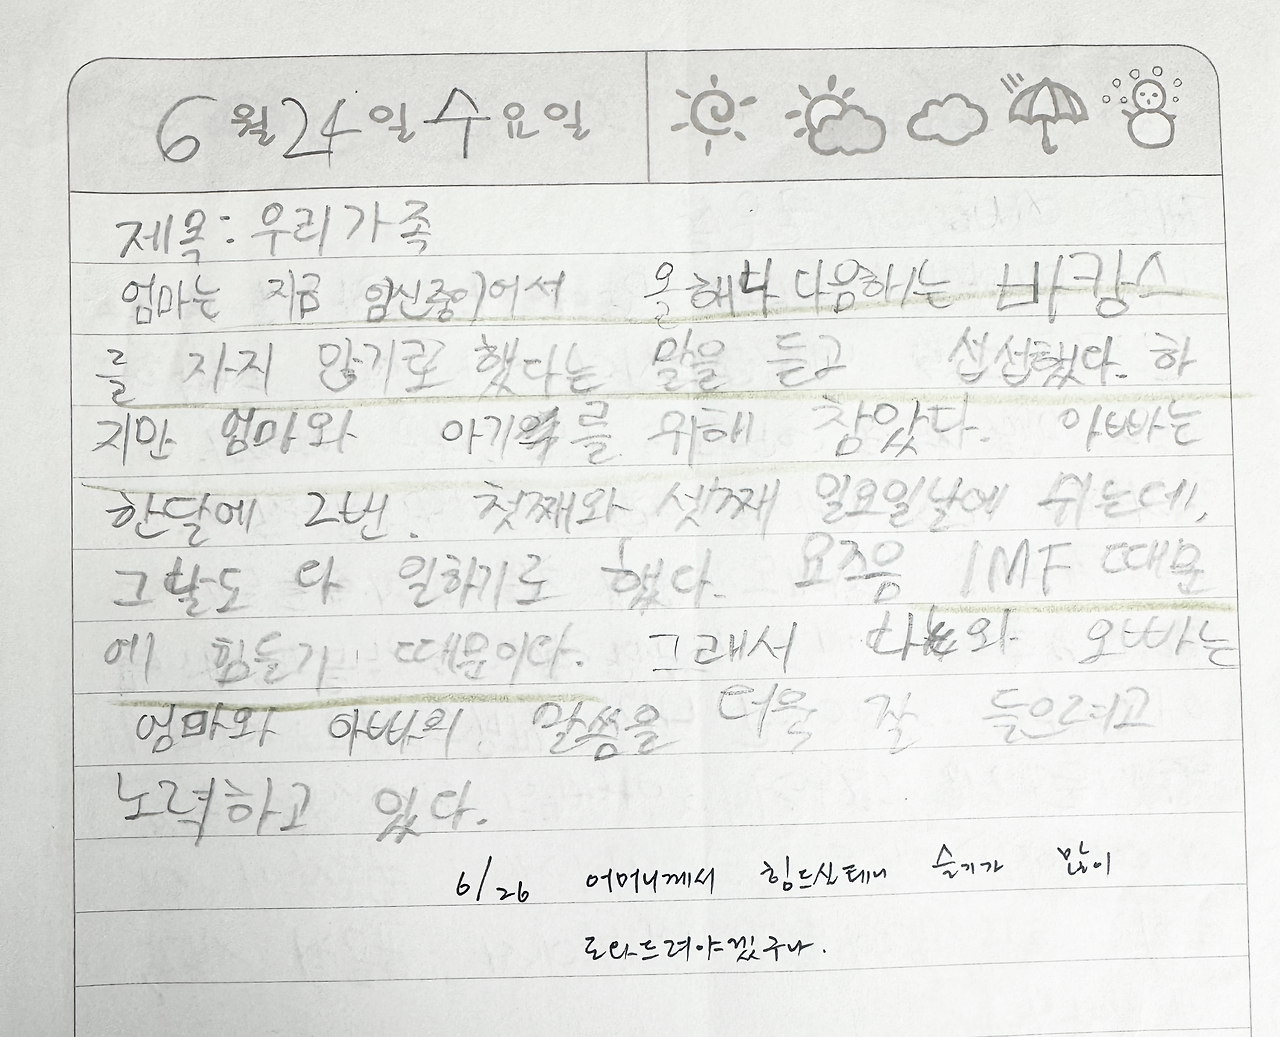 6월 24일 수요일
제목: 우리가족
엄마는 지금 임신중이어서 올해나 다음해는 바캉스
를 가지 않기로 했다는 말을 듣고 섭섭했다. 하
지만 엄마와 아기를 위해 참았다. 아빠는
한달에 2번. 첫째와 셋째 일요일날에 쉬는데,
그날도 다 일하기로 했다. 요즈음 IMF 때문
에 힘들기 때문이다. 그래서 나와 오빠는
엄마와 아빠의 말씀을 더욱 잘 들으려고
노력하고 있다.
6/26 어머니께서 힘드실테니 슬기가 많이
도와드려야겠구나.